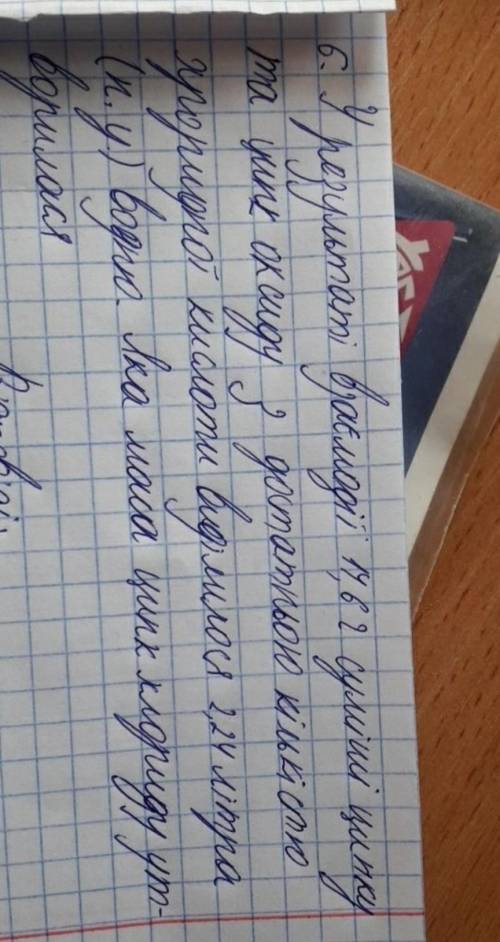 6. У результаті взаємодії 14,6 г суміші цинку
та цинк оксиду з достатньою кількістю
хлоридної кислоти виділилося 2,24 літра
(н.у.) водню. Яка маса цинк хлориду ут-
ворилася